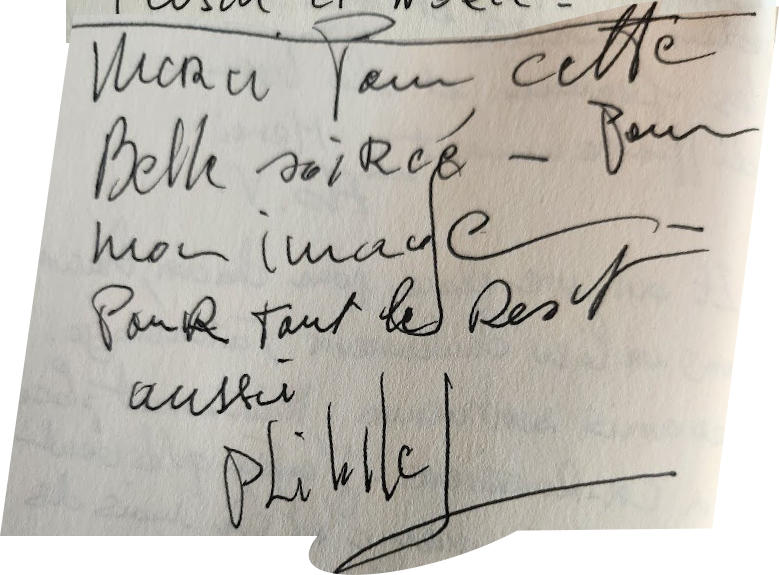 et
Merci Pour cette
Belle soirée - Pour
mon image -
Pour tout le Rest
aussi